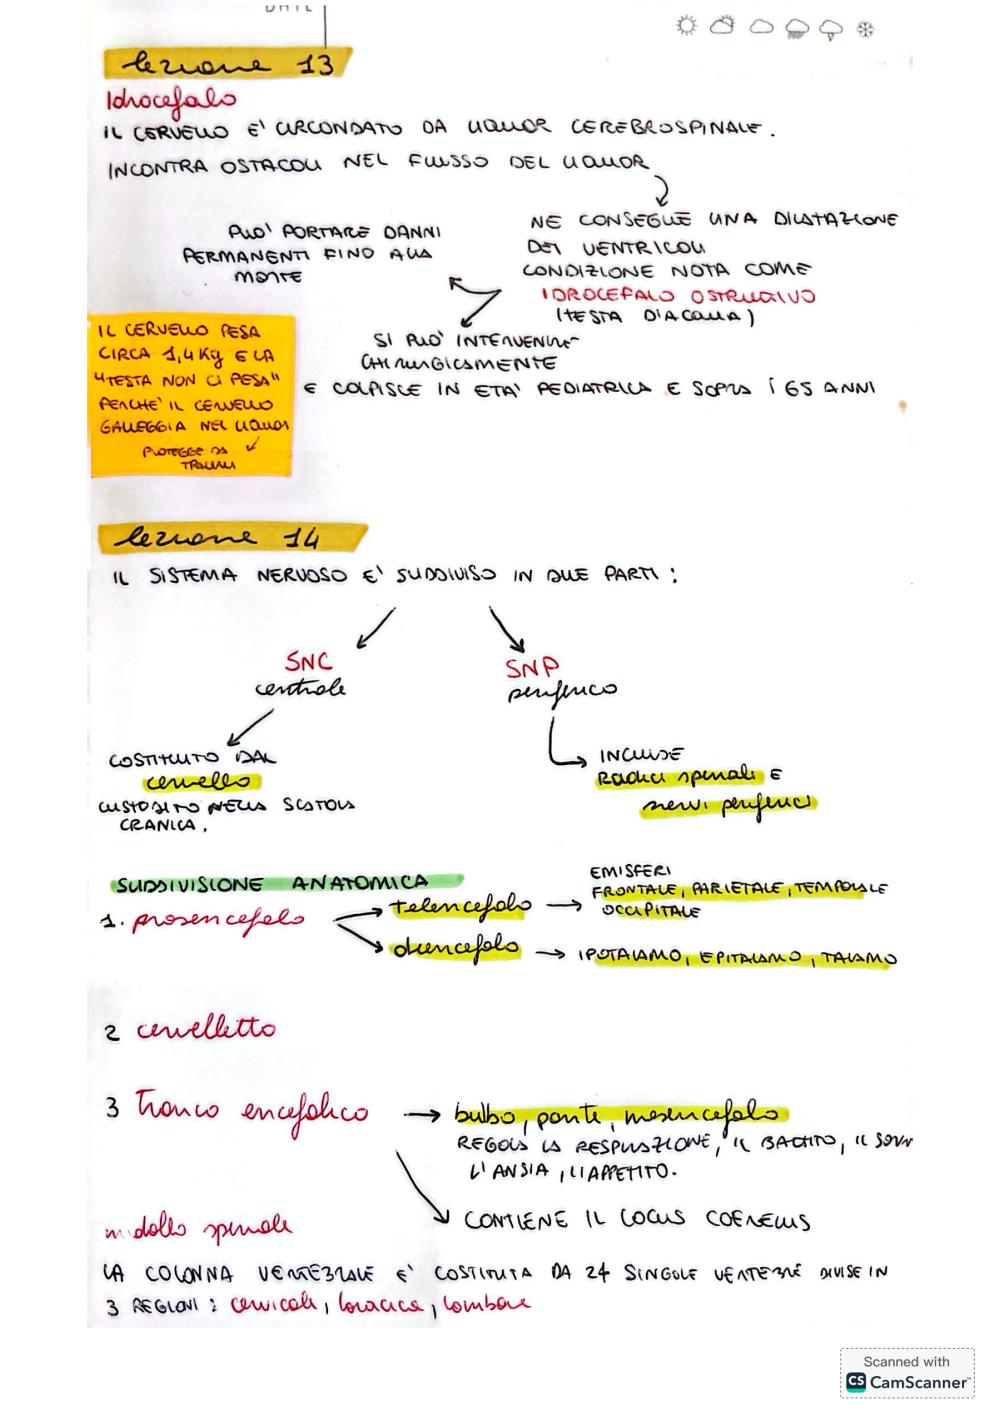 DATE
lezione 13
Idrocefalo
IL CERVELLO E' CIRCONDATO DA LIQUOR CEREBROSPINALE.
INCONTRA OSTACOLI NEL FLUSSO DEL LIQUOR
NE CONSEGUE UNA DILATAZIONE
DEI VENTRICOLI
CONDIZIONE NOTA COME
IDROCEFALO OSTRUTTIVO
(TESTA D'ACQUA)
PUO' PORTARE DANNI
PERMANENTI FINO ALLA
MORTE
SI PUO' INTERVENIRE
CHIRURGICAMENTE
E COLPISCE IN ETA' PEDIATRICA E SOPRA i 65 ANNI
IL CERVELLO PESA
CIRCA 1,4 Kg E LA
"TESTA NON CI PESA"
PERCHE' IL CERVELLO
GALLEGGIA NEL LIQUOR
PROTEGGE DA
TRAUMI
lezione 14
IL SISTEMA NERVOSO E' SUDDIVISO IN DUE PARTI:
SNC
centrale
SNP
periferico
COSTITUITO DAL
cervello
CUSTODITO NELLA SCATOLA
CRANICA.
INCLUDE
Radici spinali E
nervi periferici
SUDDIVISIONE ANATOMICA
1. prosencefalo
telencefalo
EMISFERI
FRONTALE, PARIETALE, TEMPORALE
OCCIPITALE
diencefalo
IPOTALAMO, EPITALAMO, TALAMO
2 cervelletto
3 Tronco encefalico
bulbo, ponte, mesencefalo
REGOLA LA RESPIRAZIONE, IL BATTITO, IL SONN
L'ANSIA, L'APPETITO.
CONTIENE IL LOCUS COERELUS
midollo spinale
LA COLONNA VERTEBRALE E' COSTITUITA DA 24 SINGOLE VERTEBRE DIVISE IN
3 REGIONI: cervicali, toracica, lombare
Scanned with
CS CamScanner